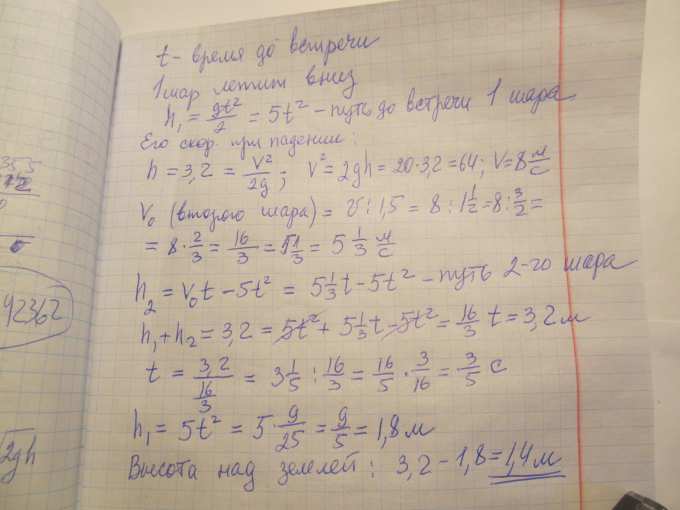 t - время до встречи
1 шар летит вниз
h₁ = gt²/2 = 5t² - путь до встречи 1 шара
Его скор. при падении:
h = 3,2 = V²/2g; V² = 2gh = 20·3,2 = 64; V = 8 м/с
V₀ (второго шара) = V : 1,5 = 8 : 1 1/2 = 8 : 3/2 =
= 8 · 2/3 = 16/3 = 5 1/3 = 5 1/3 м/с
h₂ = V₀t - 5t² = 5 1/3 t - 5t² - путь 2-го шара
h₁ + h₂ = 3,2 = 5t² + 5 1/3 t - 5t² = 16/3 t = 3,2 м
t = 3,2/(16/3) = 3 1/5 : 16/3 = 16/5 · 3/16 = 3/5 с
h₁ = 5t² = 5 · 9/25 = 9/5 = 1,8 м
Высота над землей: 3,2 - 1,8 = 1,4 м
42362
√2gh